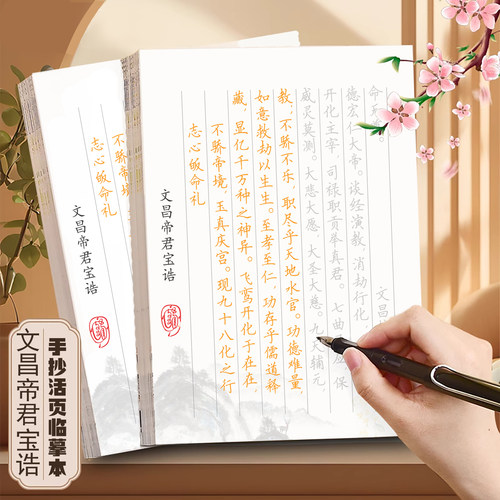 文昌帝君宝诰
志心皈命礼
不骄帝境,玉真庆宫。现九十八化之行
藏,显亿千万种之神异。飞鸾开化于在在,
如意救劫以生生。至孝至仁,功存乎儒道释
教,不骄不乐,职尽乎天地水官。功德难量,
威灵莫测。大悲大愿,大圣大慈。九 辅元,
开化主宰,司禄职贡举真君。七曲 保
德宏仁大帝。谈经演教,消劫行化,
命
文昌
文昌帝君宝诰
志心皈命礼
不骄帝境
文昌帝君宝诰
手抄活页临摹本